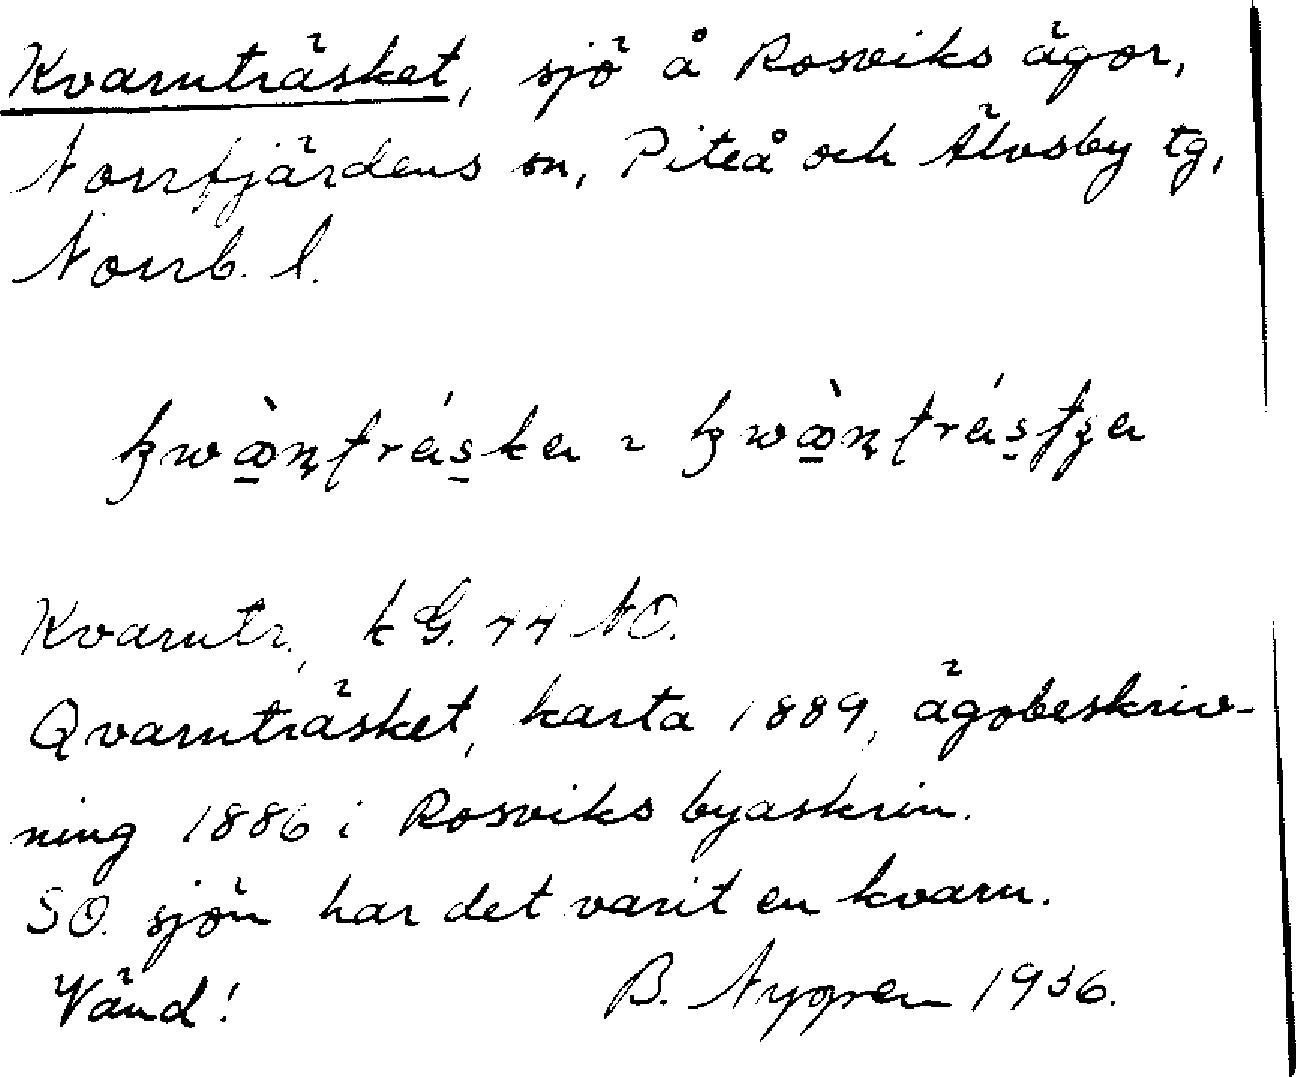 Kvarnträsket, sjö å Rosviks ägor,
Norrfjärdens sn, Piteå och Älvsby tg,
Norrb. l.
Kvarntr., kG. 44 NO.
Qvarnträsket, karta 1889, ägobeskriv-
ning 1886 i Rosviks byaskrin.
SO. sjön har det varit en kvarn.
Vänd! B. Nygren 1936.